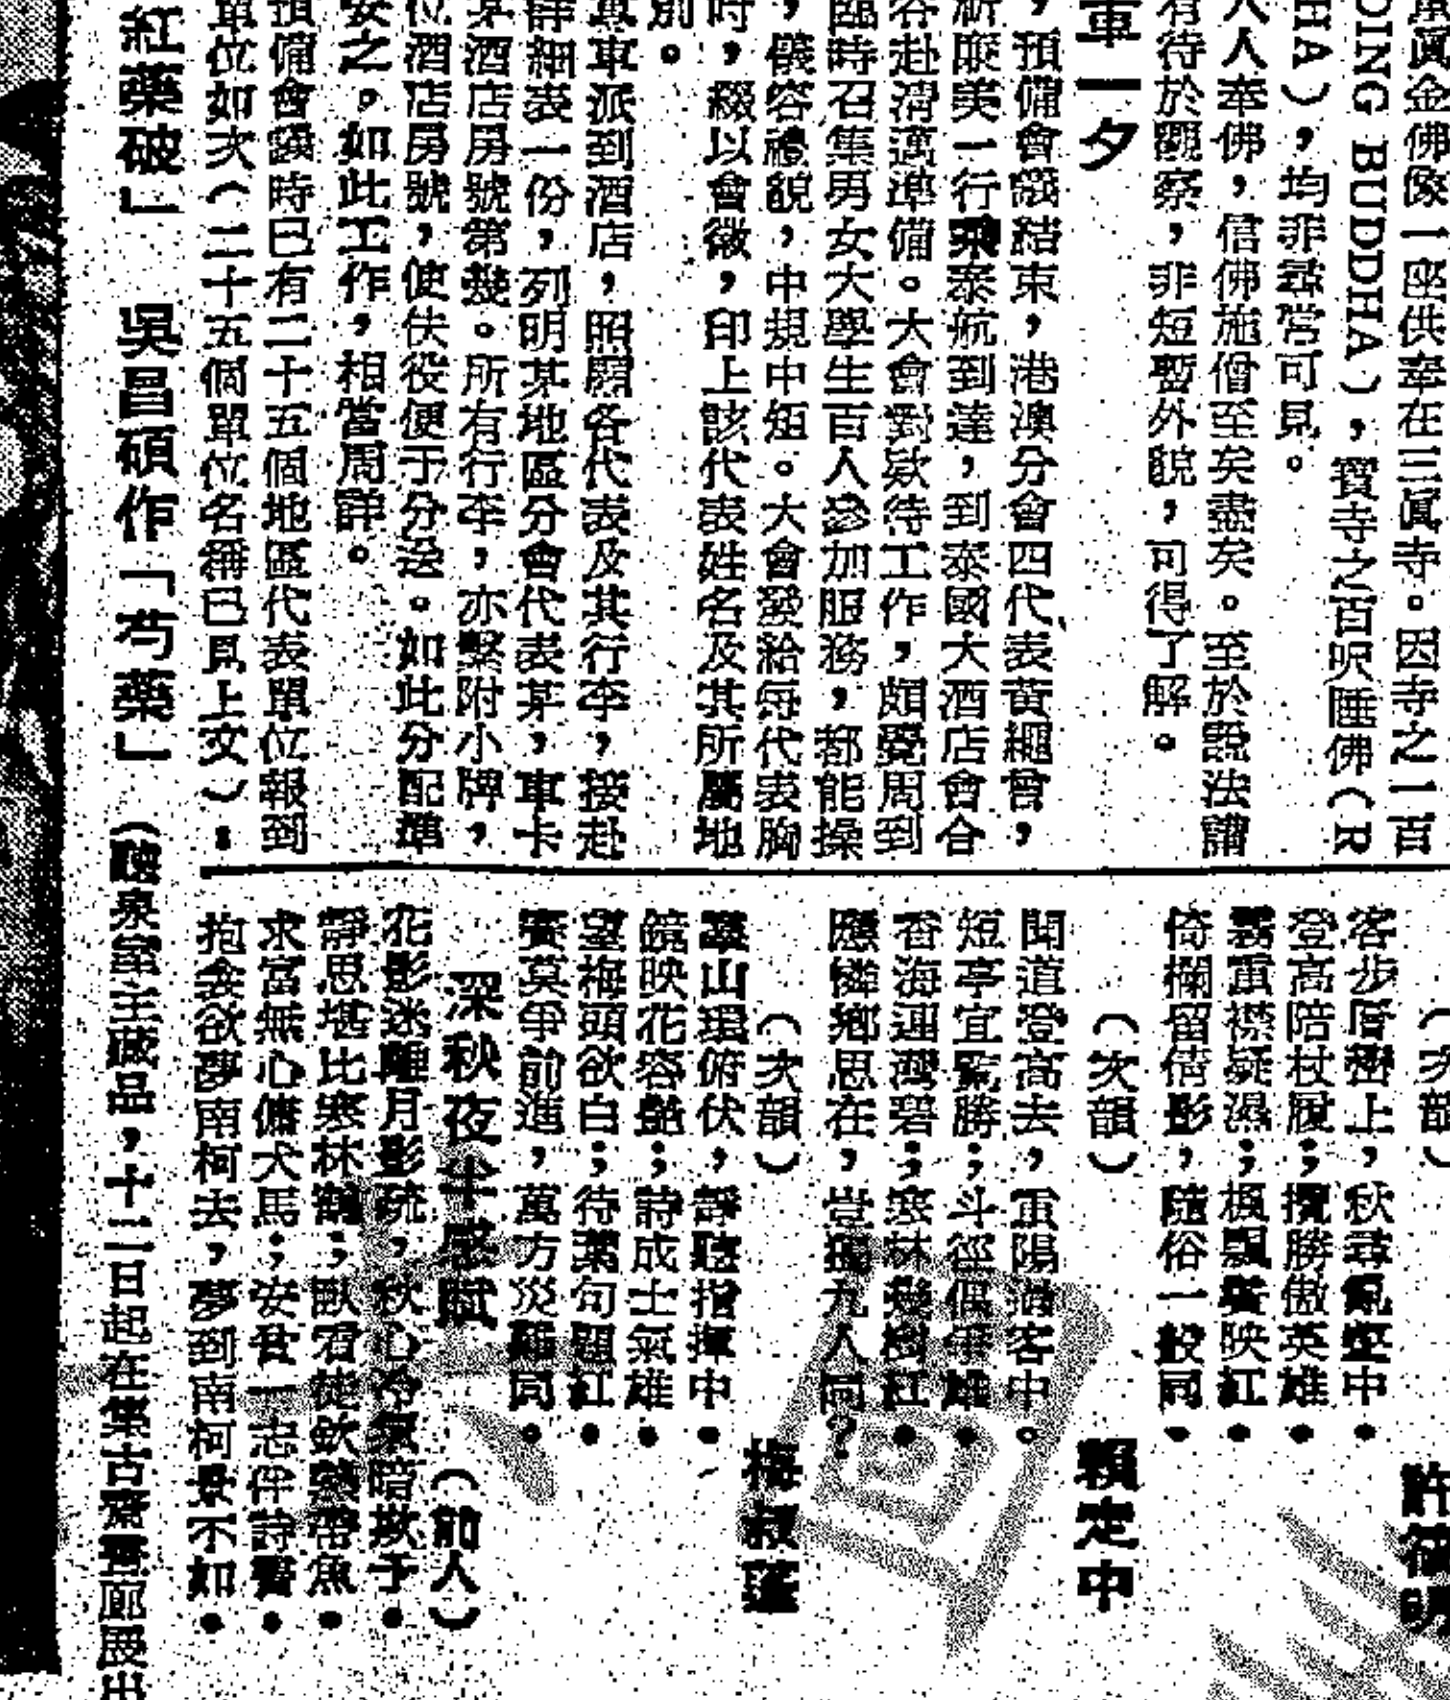 萬眞金佛像一座供奉在三眞寺。因寺之一百
DING BUDDHA），寶寺之百呎睡佛（R
HA），均非尋常可見。
人人奉佛，信佛施僧至矣盡矣。至於說法講
有待於觀察，非短暫外貌，可得了解。
車一夕
，預備會議結束，港澳分會四代表黃繩曾，
美一行乘泰航到達，到泰國大酒店會合
赴清邁準備。大會對欵待工作，頗覺周到
臨時召集男女大學生百人參加服務，都能操
，儀容禮貌，中規中矩。大會發給每代表胸
時，綴以會徽，印上該代表姓名及其所屬地
別。
車派到酒店，照顧各代表及其行李，接赴
詳細表一份，列明某地區分會代表某，車卡
某酒店房號第幾。所有行李，亦繫附小牌，
位酒店房號，使伕役便于分送。如此分配
安之。如此工作，相當周詳。
預備會議時已有二十五個地區代表單位報到
單位如次（二十五個單位名稱已見上文）：
紅藥破」　吳昌碩作「芍藥」（聽泉室主藏品，十二日起在集古齋畫廊展出
（次韻）　許
客步層巒上，秋尋亂壑中。
登高陪杖履；攬勝傲英雄。
霧重襟疑濕；楓飄鬢映紅。
倚欄留倩影，隨俗一般同。
（次韻）　賴定中
聞道登高去，重陽猶客中。
短亭宜覽勝；斗徑偶爭雄。
香海連灣碧；寒林幾樹紅。
應憐鄉思在，豈獨九人同？
（次韻）　梅叔蓬
羣山環俯伏，靜聽指揮中。
鏡映花容艷；詩成士氣雄。
望梅頭欲白；待葉句題紅。
賽莫爭前進，萬方災難同。
深秋夜半感賦　（前人）
花影迷離月影疏，秋心冷気暗揿予。
靜思堪比寒林鶴；獸宿徒欽帶魚。
求富無心儕犬馬；安貧一志伴詩書。
抱衾欲夢南柯去，夢到南柯景不如。